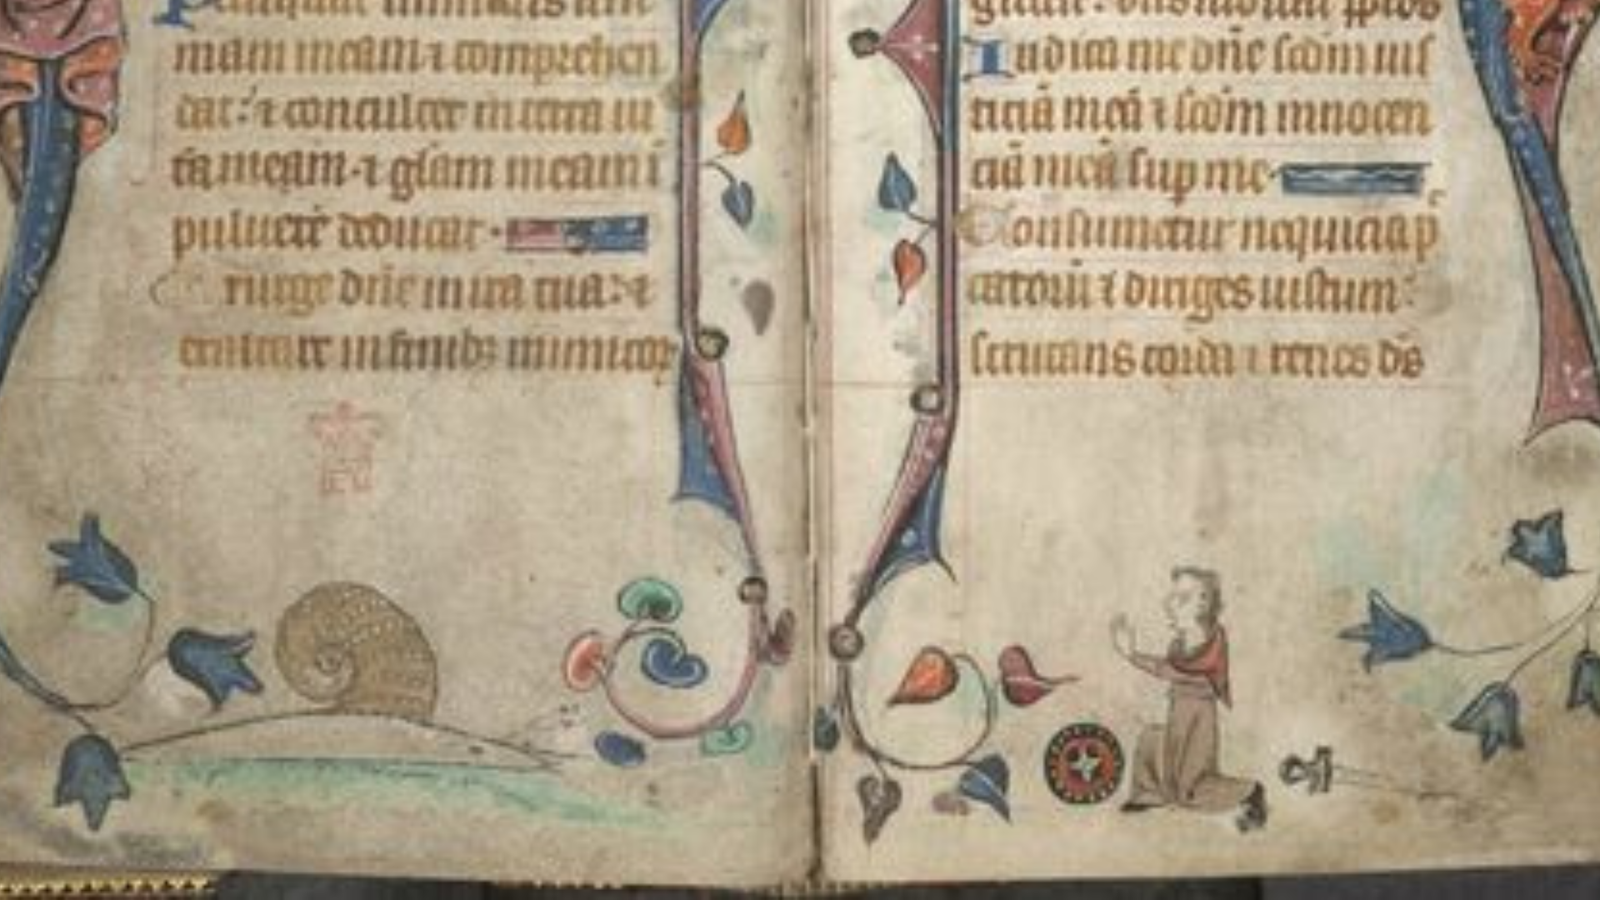 mam meam ⁊ comprehen
dat: ⁊ conculcet in terra ui
tā meam ⁊ glām meam ī
puluerē deducat
rurge dn̄e in ira tua: ⁊
exaltare in finib; inimicoꝝ
Iudica me dn̄e scd̄m ius
ticiā meā ⁊ scd̄m innocen
ciā meā sup me
Consumetur nequicia p̄
catorū ⁊ diriges iustum:
scrutans corda ⁊ renes ds̄